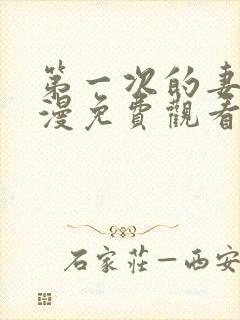 第一次的妻
漫免費觀看
石家莊—西安